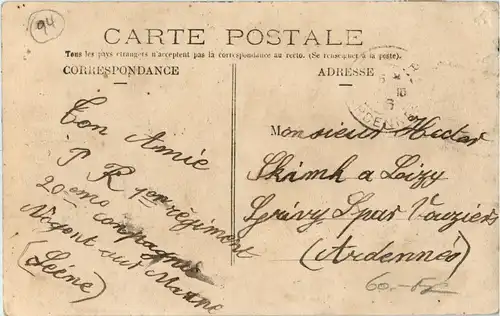 94
CARTE POSTALE
Tous les pays étrangers n'acceptent pas la correspondance au recto. (Se renseigner à la poste).
CORRESPONDANCE
ADRESSE
Ton Amie
P R 1er régiment
20eme compagnie
Nogent sur Marne
(Seéne)
Monsieur Hector
Skimh a Loizy
par Vouziers
(Ardennes)